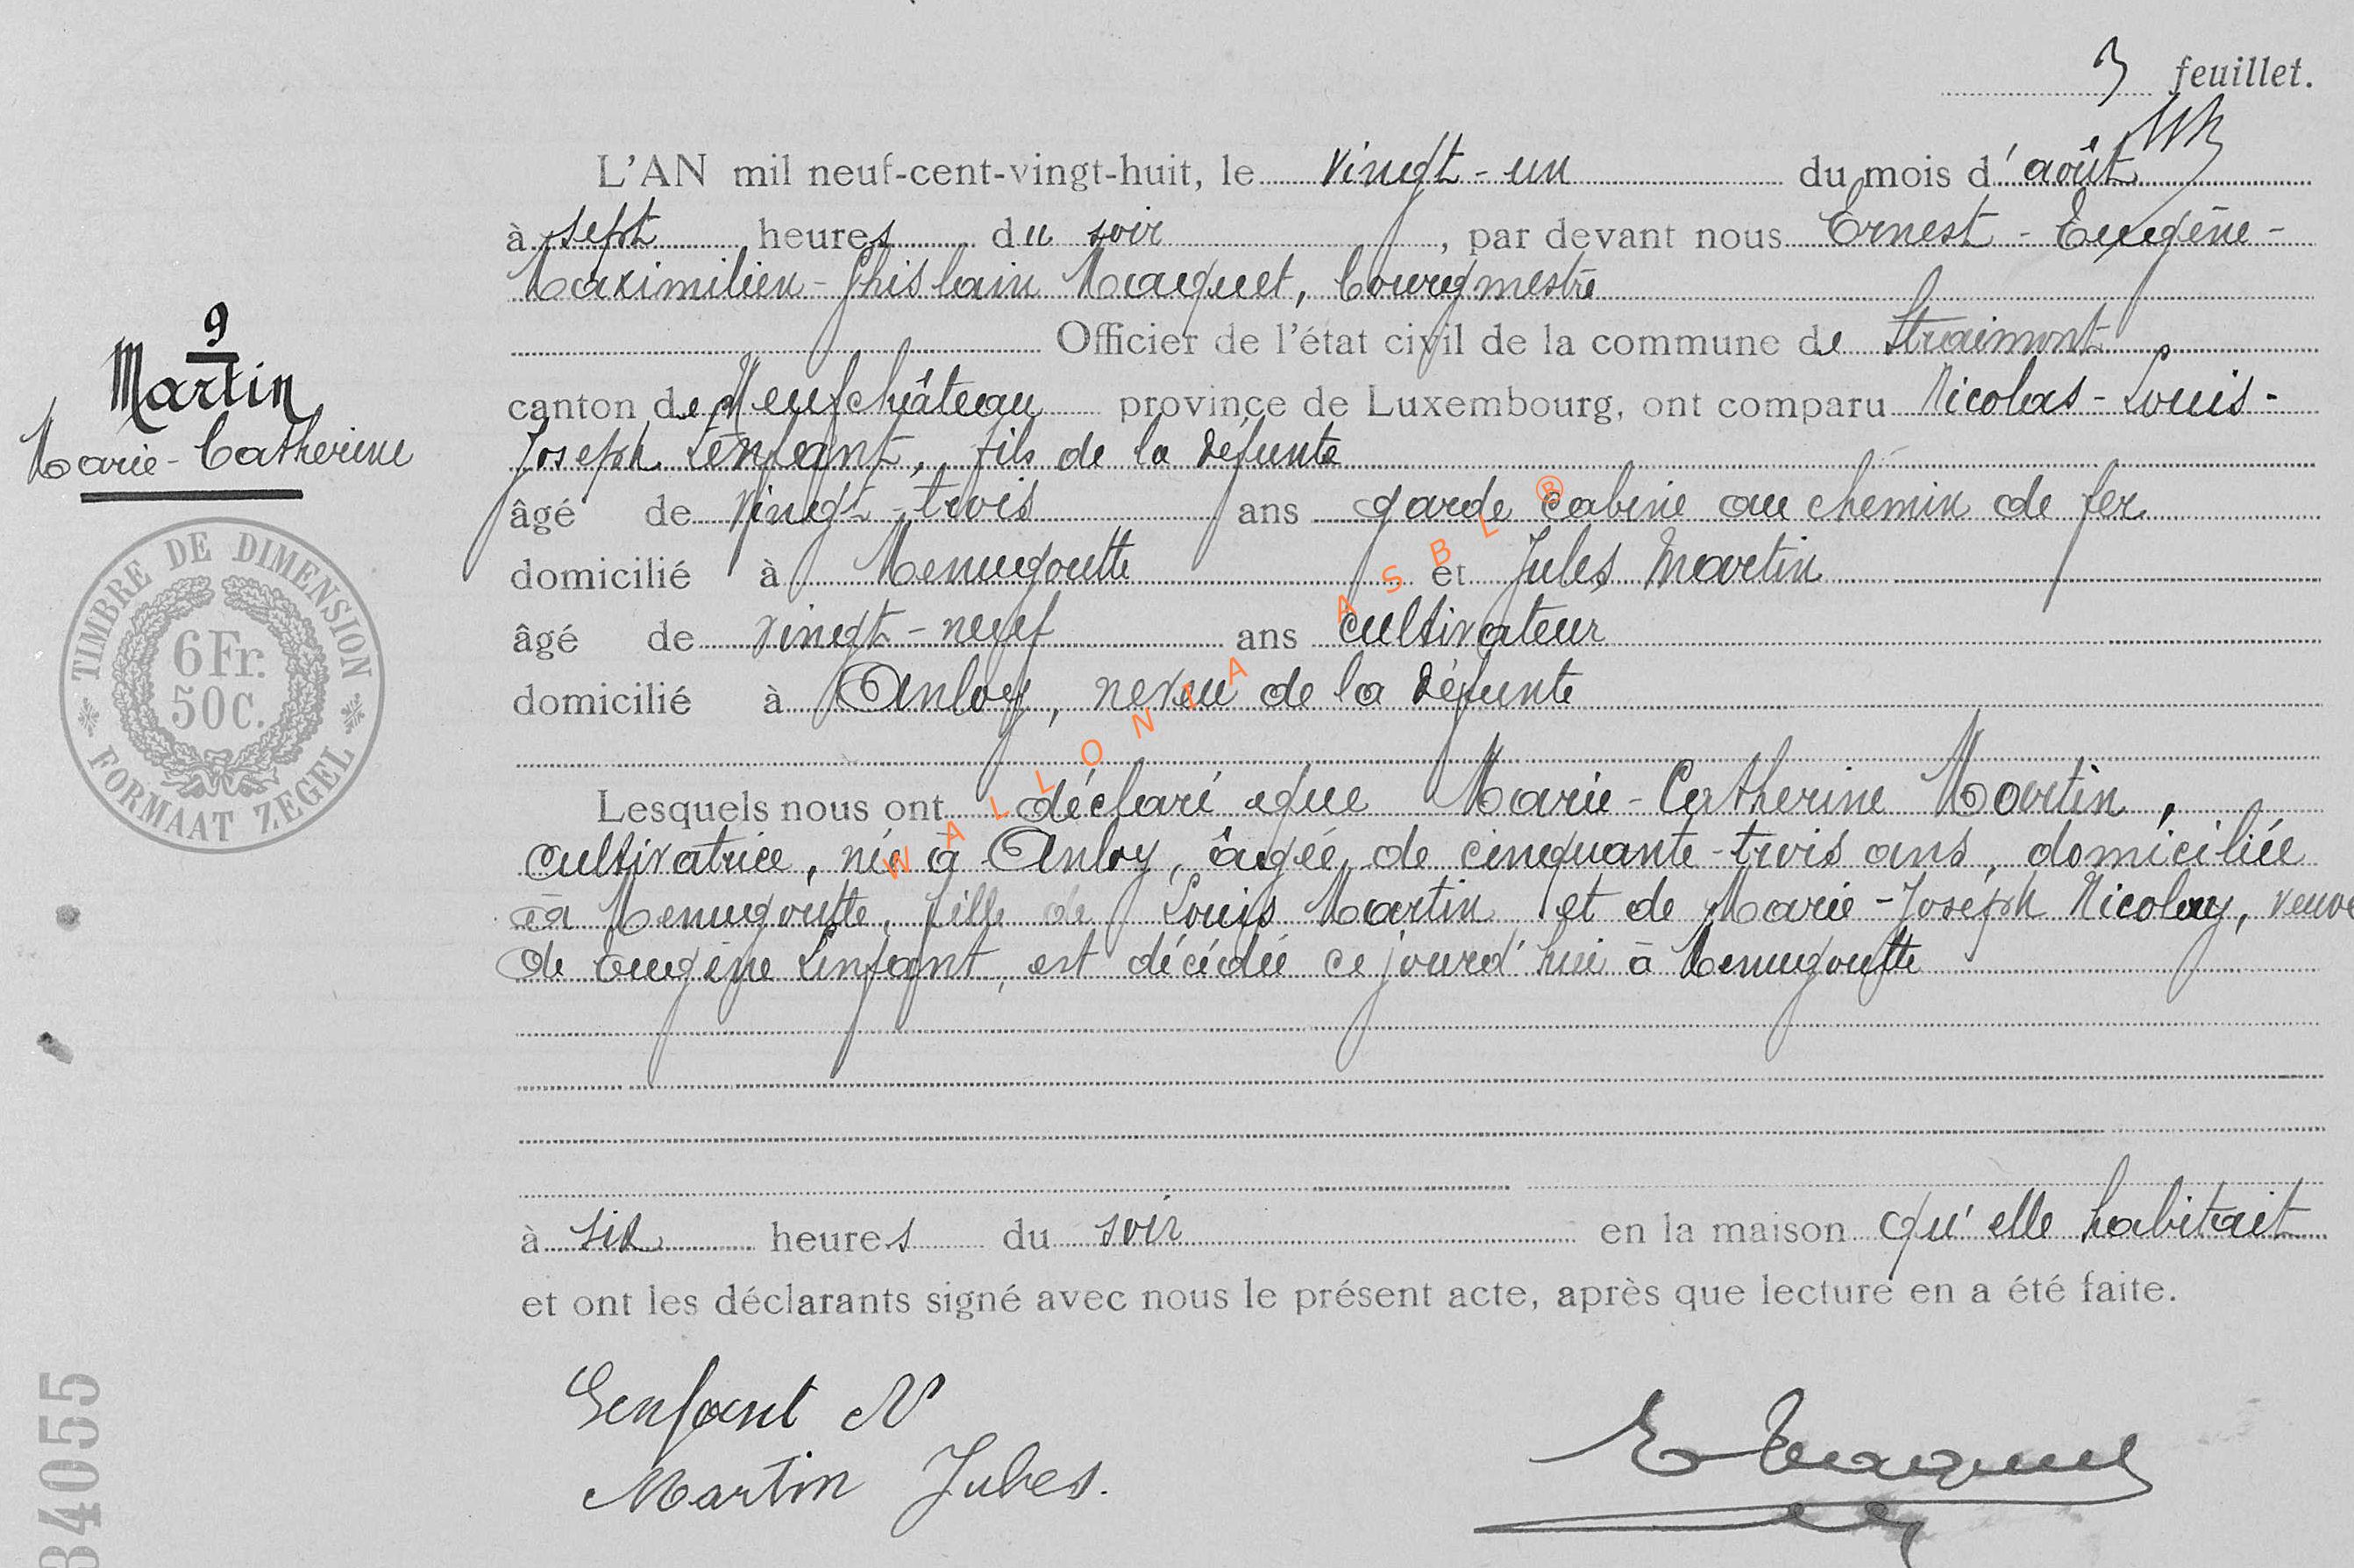 3 feuillet.
L'AN mil neuf-cent-vingt-huit, le vingt-un du mois d'août
à sept heures du soir, par devant nous Ernest-Eugène-
Maximilien-Ghislain Macquet, bourgmestre
Officier de l'état civil de la commune de Straimont
canton de Neufchâteau province de Luxembourg, ont comparu Nicolas-Louis-
Joseph Lenfant, fils de la défunte
âgé de vingt-trois ans garde cabine au chemin de fer
domicilié à Menugoutte et Jules Martin
âgé de vingt-neuf ans cultivateur
domicilié à Anloy, neveu de la défunte
Lesquels nous ont déclaré que Marie-Catherine Martin,
cultivatrice, née à Anloy, âgée de cinquante-trois ans, domiciliée
à Menugoutte, fille de Louis Martin et de Marie-Joseph Nicolay, veuve
de Eugène Linfant, est décédée ce jourd'hui à Menugoutte
à six heures du soir en la maison qu'elle habitait
et ont les déclarants signé avec nous le présent acte, après que lecture en a été faite.
Lenfant N
Martin Jules.
9
Martin
Marie-Catherine
TIMBRE DE DIMENSION
6 Fr.
50 C.
FORMAAT ZEGEL
34055
WALLONIA ASBL ®